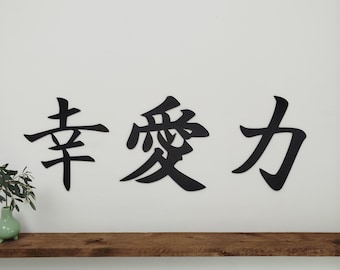 幸愛力